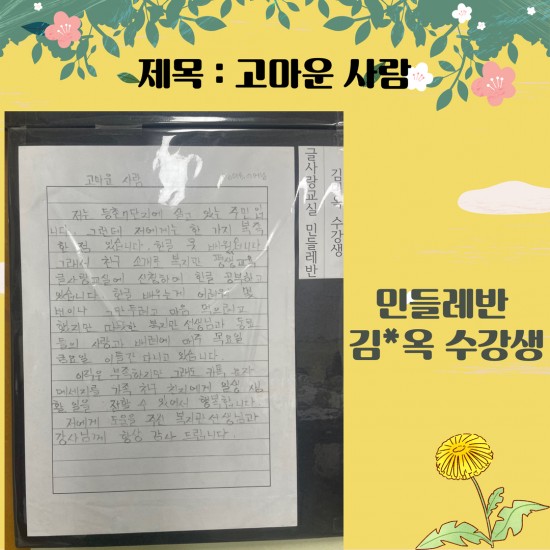 제목 : 고마운 사람
고마운 사람
저는 등촌7단지에 살고 있는 주민입
니다. 그런데 저에게는 한 가지 부족
한 점 있습니다. 한글을 못 배웠습니다
그래서 친구 소개로 복지관 평생교육
글사랑교실에 신청하여 한글 공부하고
있습니다 한글 배우는게 어려워 몇
번이나 그만두려고 마음 먹으려고
했지만 복지관 선생님과 동료
들의 사랑과 배려에 매주 목요일
금요일 이틀간 다니고 있습니다
부족하지만 그래도 가족
메세지를 가족 친구 친지에게 일상 생
활 일을 전할 수 있어서 행복합니다.
저에게 도움을 주신 복지관 선생님과
강사님께 항상 감사 드립니다.
글사랑교실 민들레반
수강생
민들레반
김*옥 수강생